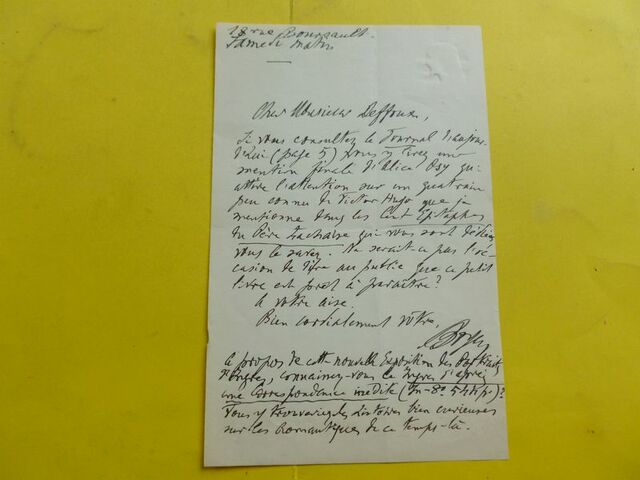 18 rue Boursault.
Samedi matin
Cher Monsieur Deffoux,
Si vous consultez le Journal d'aujour-
d'hui (page 5) vous y lirez une
mention finale d'Alice Ozy qui
attire l'attention sur un quatrain
peu connu de Victor Hugo que je
mentionne dans les Cent Epitaphes
du Père Lachaise qui vous sont dédiées
vous le savez. Ne serait-ce pas l'oc-
casion de dire au public que ce petit
livre est prêt à paraître?
A votre aise.
Bien cordialement vôtre,
A propos de cette nouvelle Exposition des Portraits
d'Ingres, connaissez-vous le Ingres d'après
une Correspondance inédite (In-8° 544 p.)?
Vous y trouveriez des histoires bien curieuses
sur les Romantiques de ce temps-là.